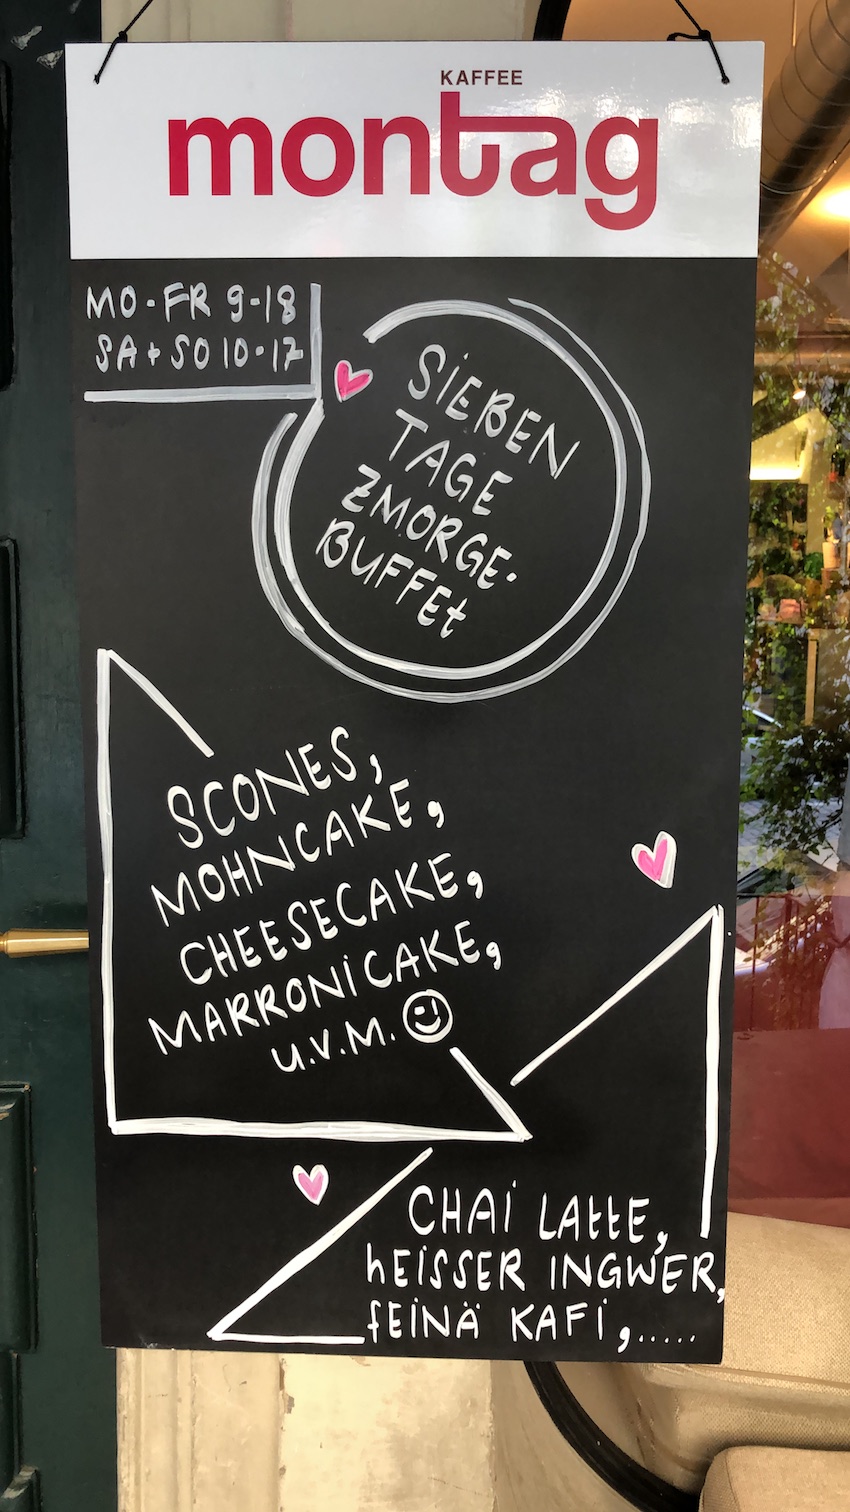 KAFFEE
montag
MO - FR 9-18
SA + SO 10-17
SIEBEN
TAGE
ZMORGE-
BUFFET
SCONES,
MOHNCAKE,
CHEESECAKE,
MARRONICAKE,
U.V.M.
CHAI LATTE,
HEISSER INGWER,
FEINÄ KAFI,.....